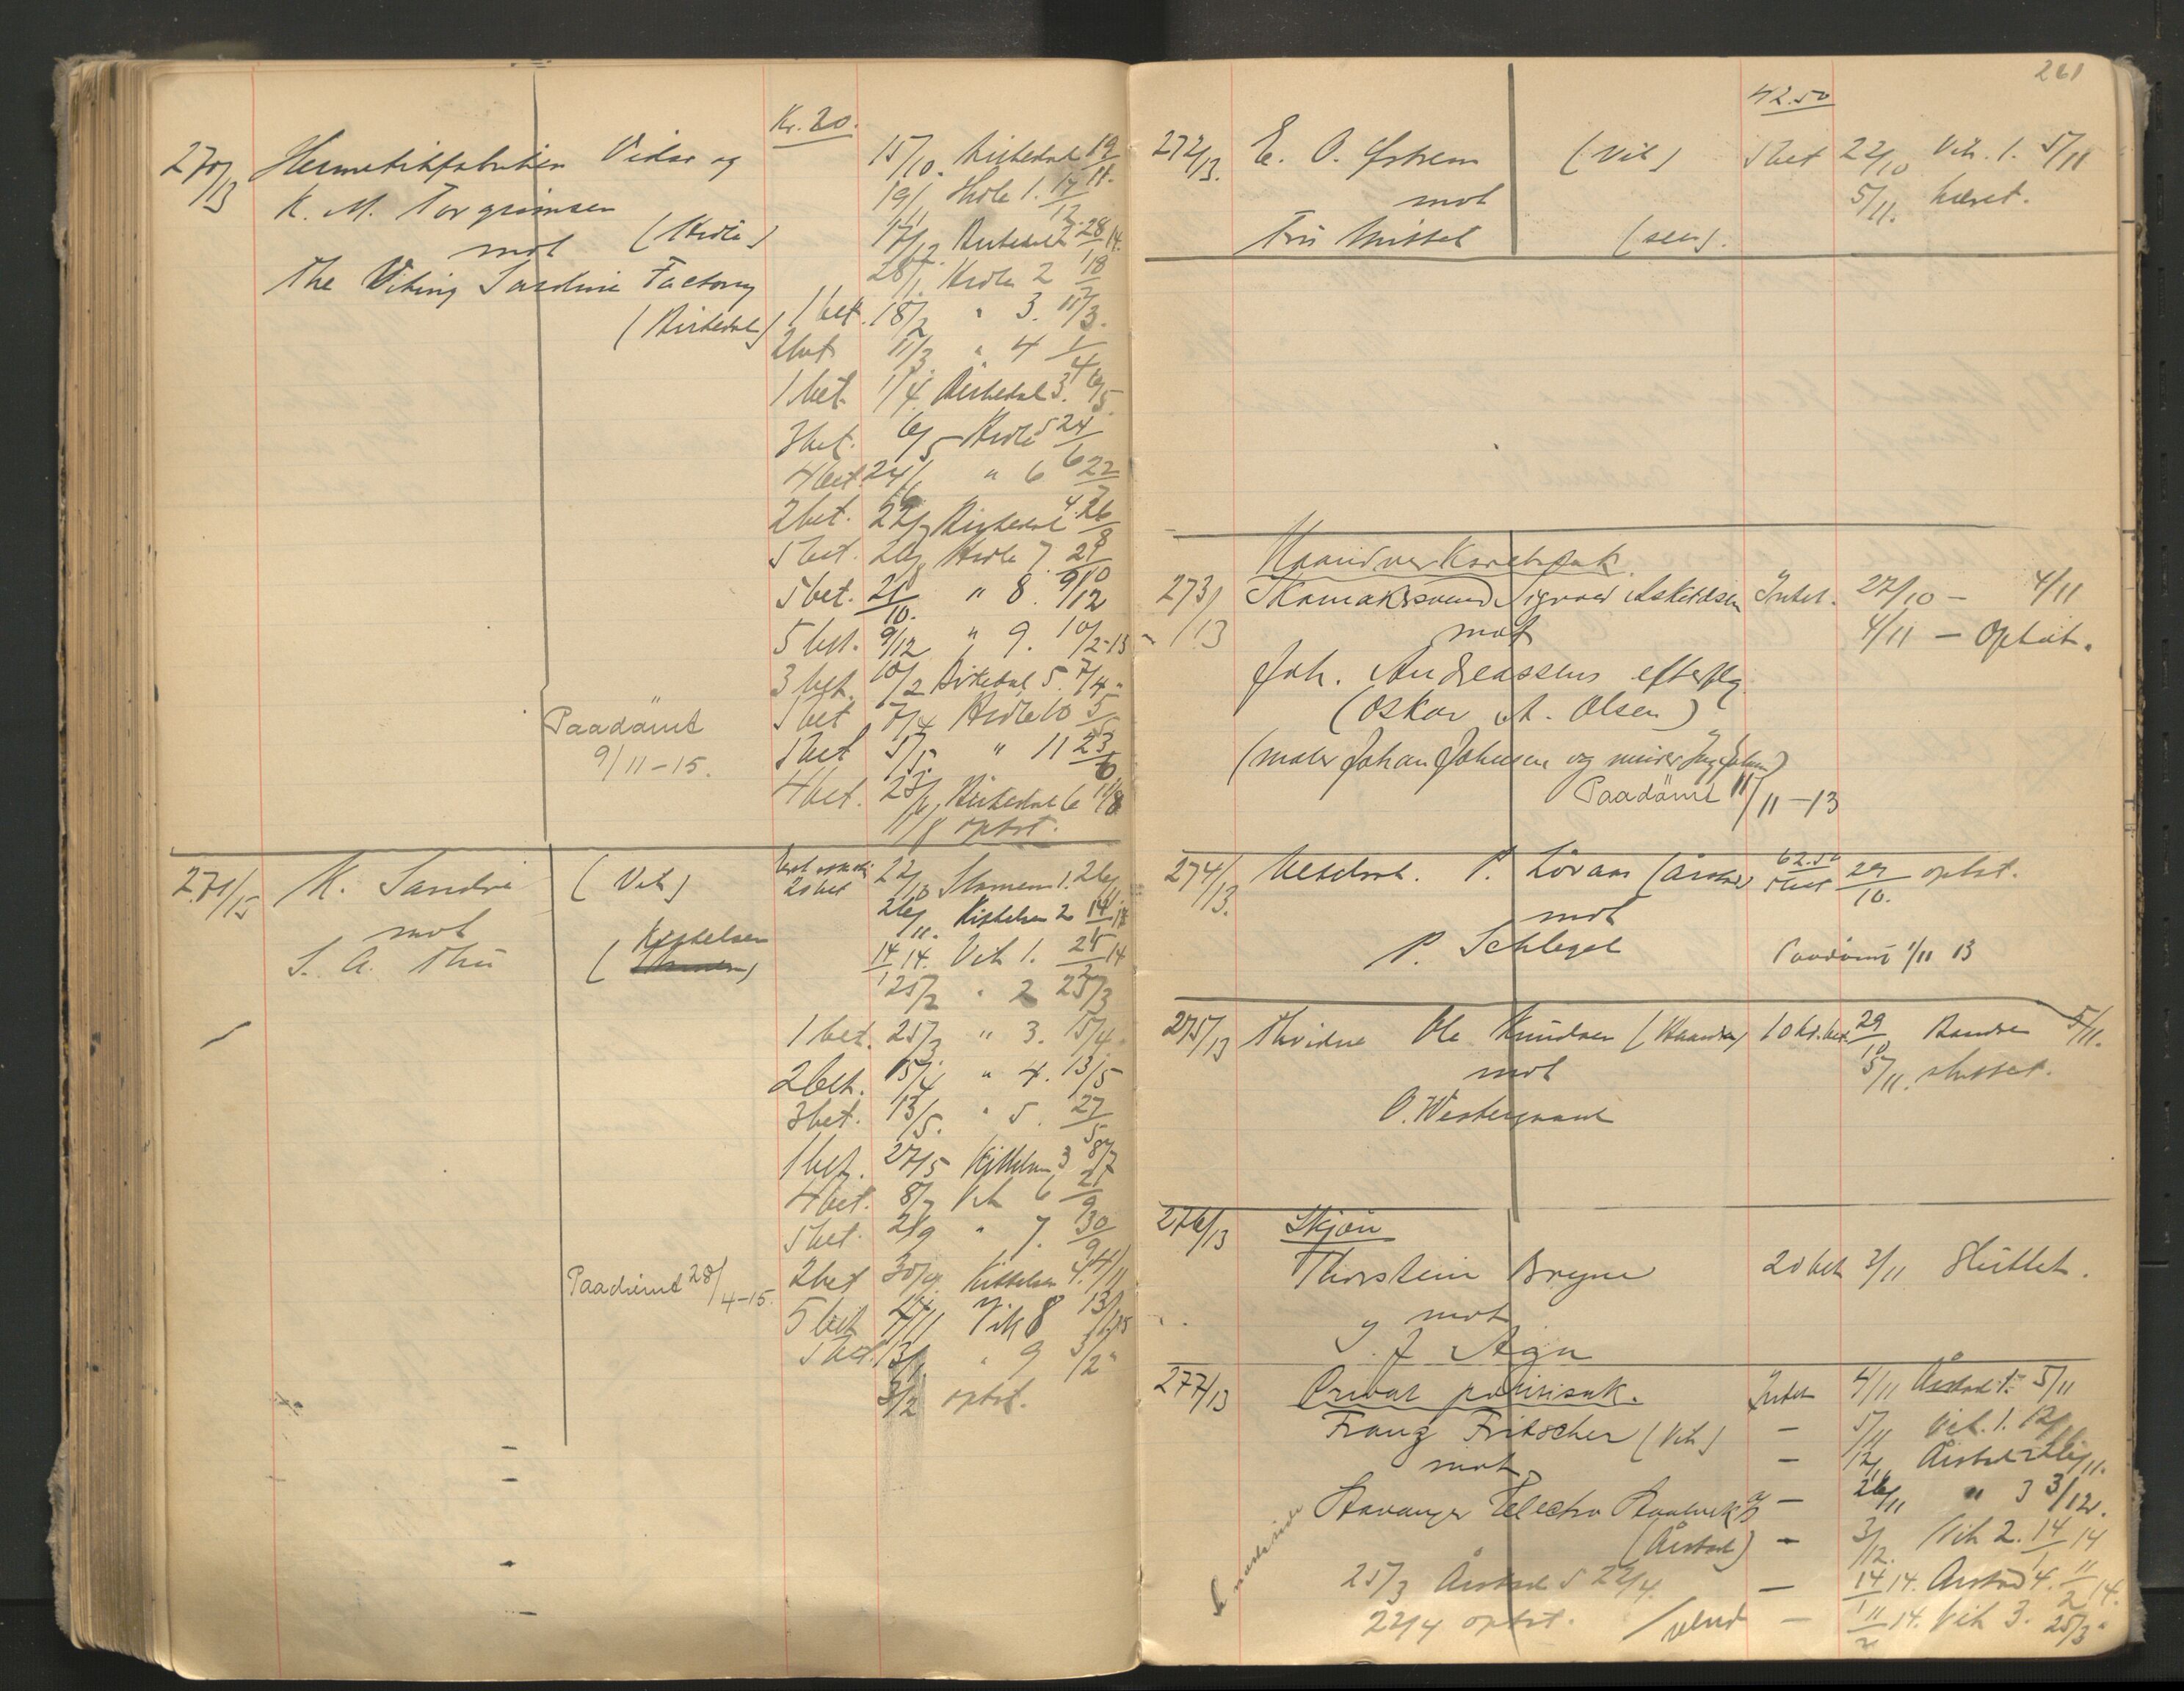 Kr. 20.
270/13 Hermetikfabriken Vidar og
K. M. Torgrimsen
mot (Hidle)
The Viking Sardine Factory
(Birkedal)
15/10. Birkedal 19/11.
19/11 Hidle 1. 17/12.
17/12. Birkedal 2 28/1 14.
28/1. Hidle 2 18/2
1 bet. 18/2 " 3. 11/3.
2 bet 11/3 " 4 1/4
1 bet. 1/4 Birkedal 3. 6/5.
3 bet. 6/5 Hidle 5 24/6
4 bet. 24/6 " 6 22/7
2 bet. 22/7 Birkedal 4. 26/8
5 bet. 26/8 Hidle 7. 21/10
5 bet. 21/10. " 8. 9/12
5 bet. 9/12 " 9. 10/2-15
3 bet. 10/2 Birkedal 5. 7/4 "
5 bet 7/4 Hidle 10 5/5
5 bet 5/5. " 11 23/6
4 bet. 23/6 Birkedal 6 11/8
11/8 optat.
Paadömt
9/11-15.
271/13 K. Sandvi (Vik)
mot
S. A. Thu (Kittelsen
20 bet 22/10 1. 26/11.
26/11. Kittelsen 2 14/1 14
14/1 14. Vik 1. 25/2 14
25/2 " 2 25/3
1 bet. 25/3 " 3. 15/4.
2 bet. 15/4 " 4. 13/5
3 bet. 13/5. " 5. 27/5
1 bet. 27/5 Kittelsen 3 8/7
4 bet. 8/7 Vik 6 2/9
5 bet. 2/9 " 7. 30/9
2 bet 30/9. Kittelsen 4. 4/11
5 bet 4/11 Vik 8 13/1 15
5 bet. 13/1 " 9 3/2 "
3/2 optat.
Paadömt 28/4-15.
261
42.50
272/13. E. O. Ystrem (Vik) 5 bet 22/10 Vik. 1. 5/11
mot 5/11. hævet.
Fru Missel (selv).
Haandverksretssak.
273/13 Skomakersvend Sigvald Askildsen Intet. 27/10 - 4/11
mot 4/11 - Optat.
Joh. Andreassens efterflg
(Oskar A. Olsen)
(maler Johan Johnsen og murer )
Paadömt 11/11-13
274/13. P. Lövaas (Årstad) 62.50 5 bet 29/10. optat.
mot
P. Schlegel Paadömt 1/11 13
275/13 Thvidne Ole Knudsen 10 kr. bet. 29/10 5/11.
mot 5/11. sluttet.
O. Westergaard
276/13 Skjön
Thorstein Bryne 20 bet 3/11 Sluttet.
mot
J. J. Aga
277/13 Privat politisak. Intet 4/11 Årstad 1. 5/11
Franz Fritscher (Vik) - 5/11 Vik. 1. 12/11
mot - 12/11 Årstad 2 26/11.
Stavanger Electro Staalverk A/S - 26/11 " 3 3/12.
(Årstad) - 3/12. Vik 2. 14/1 14
25/3 Årstad 5 22/4. - 14/1 14. Årstad 4. 11/2 14.
22/4 optat. /vend - 11/2 14. Vik 3. 25/3 "
næste side